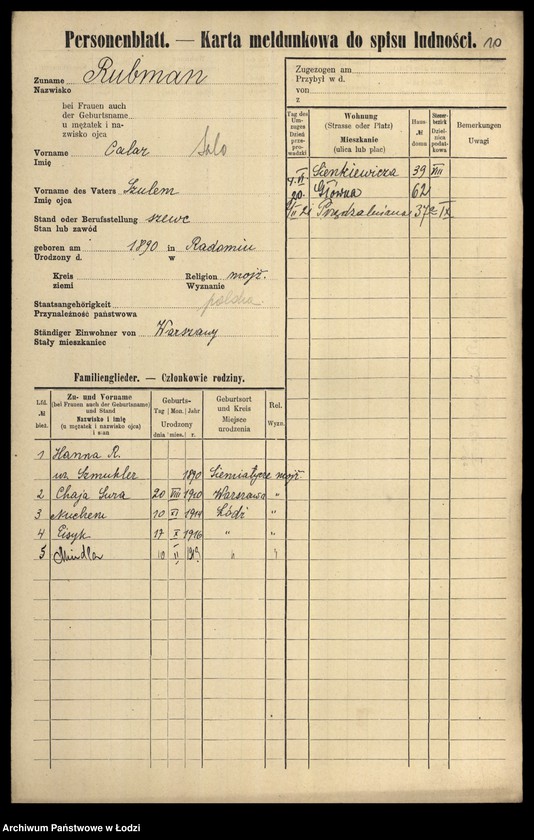 Personenblatt. — Karta meldunkowa do spisu ludności. 10
Zuname Rubman
Nazwisko
bei Frauen auch
der Geburtsname
u mężatek i na-
zwisko ojca
Vorname Calar
Imię
Vorname des Vaters Szulem
Imię ojca
Stand oder Berufsstellung szewc
Stan lub zawód
geboren am 1890 in Radomiu
Urodzony d. w
Kreis Religion mojż.
ziemi Wyznanie
Staatsangehörigkeit polska
Przynależność państwowa
Ständiger Einwohner von Warszawy
Stały mieszkaniec
Zugezogen am
Przybył w d.
von
z
Tag des Um-zuges Dzień prze-prowadzki
Wohnung (Strasse oder Platz) Mieszkanie (ulica lub plac)
Haus- № domu
Steuer-bezirk Dziel-nica podat-kowa
Bemerkungen Uwagi
Sienkiewicza 39 VIII
20. Główna 62
Przędzalniana 37 IX
Familienglieder. — Członkowie rodziny.
Lfd. № bież.
Zu- und Vorname (bei Frauen auch der Geburtsname) und Stand Nazwisko i imię (u mężatek i nazwisko ojca) i stan
Geburts- Tag Mon. Jahr Urodzony dnia mies. r.
Geburtsort und Kreis Miejsce urodzenia
Rel. Wyzn.
1 Hanna R.
uz. Szmukler 1890 Siemiatycze mojż.
2 Chaja Sura 20 VIII 1910 Warszawa "
3 Nuchem 10 XI 1914 Łódź "
4 Eisyk 17 X 1916 " "
5 Mindla 10 II 1919 " "
Archiwum Państwowe w Łodzi